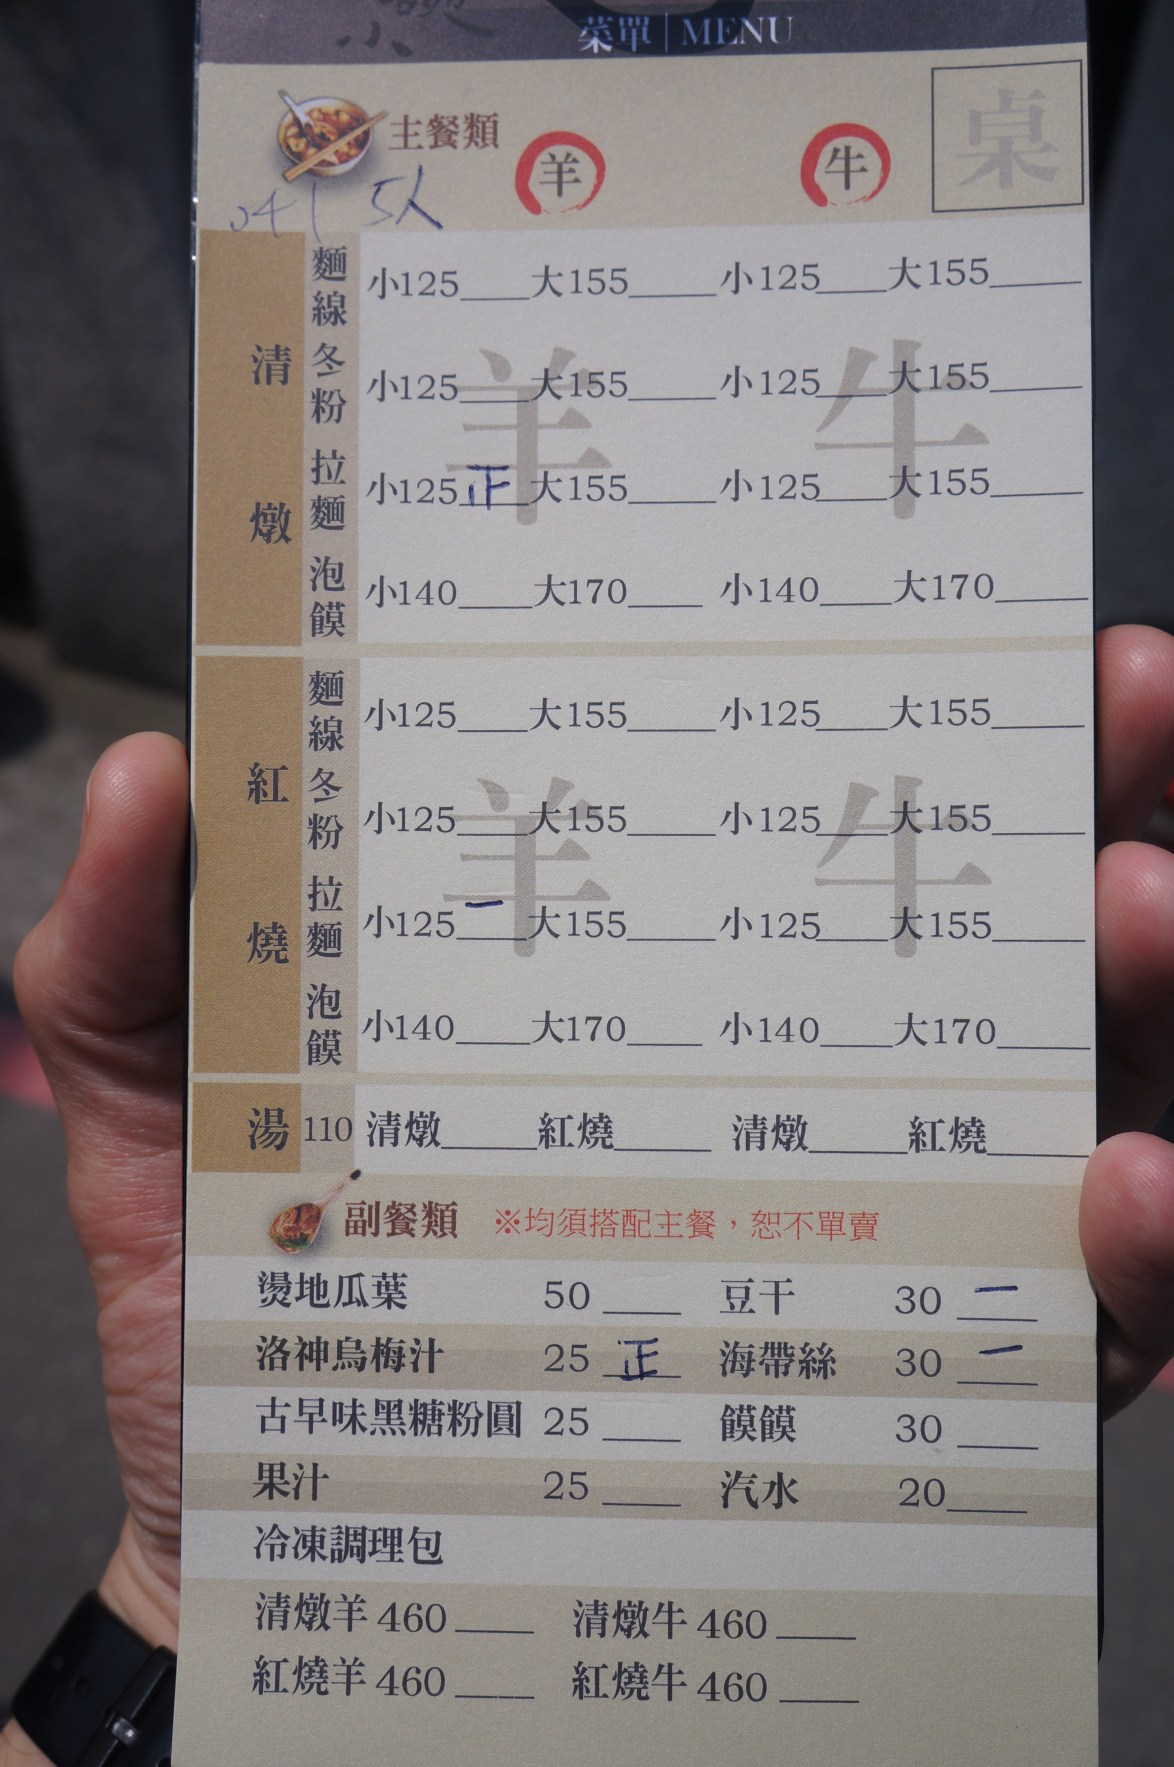 菜單 | MENU
主餐類 羊 牛 桌
041 5人
清燉
麵線 小125____大155____小125____大155____
冬粉 小125____大155____小125____大155____
拉麵 小125 正 大155____小125____大155____
泡饃 小140____大170____小140____大170____
羊 牛
紅燒
麵線 小125____大155____小125____大155____
冬粉 小125____大155____小125____大155____
拉麵 小125 一 大155____小125____大155____
泡饃 小140____大170____小140____大170____
羊 牛
湯 110 清燉____紅燒____ 清燉____紅燒____
副餐類 ※均須搭配主餐，恕不單賣
燙地瓜葉 50 ____ 豆干 30 一
洛神烏梅汁 25 正 海帶絲 30 一
古早味黑糖粉圓 25 ____ 饃饃 30 ____
果汁 25 ____ 汽水 20____
冷凍調理包
清燉羊 460 ____ 清燉牛 460 ____
紅燒羊 460 ____ 紅燒牛 460 ____